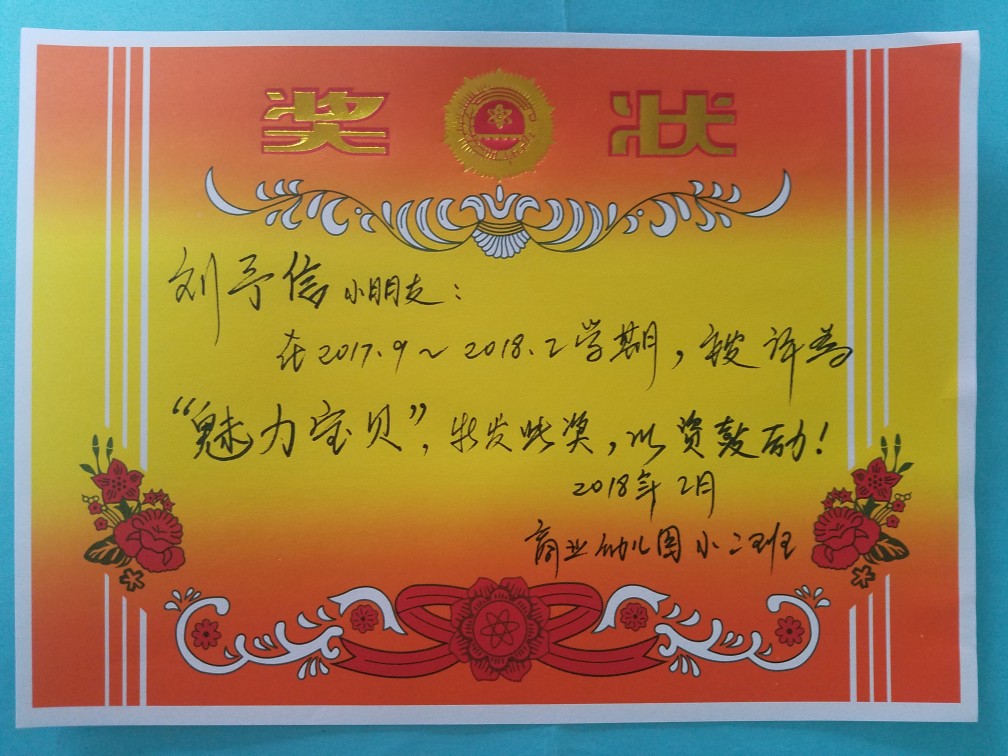 奖状
刘予信小朋友：
在2017.9～2018.2学期，被评为
“魅力宝贝”，特发此奖，以资鼓励！
2018年2月
商业幼儿园小二班